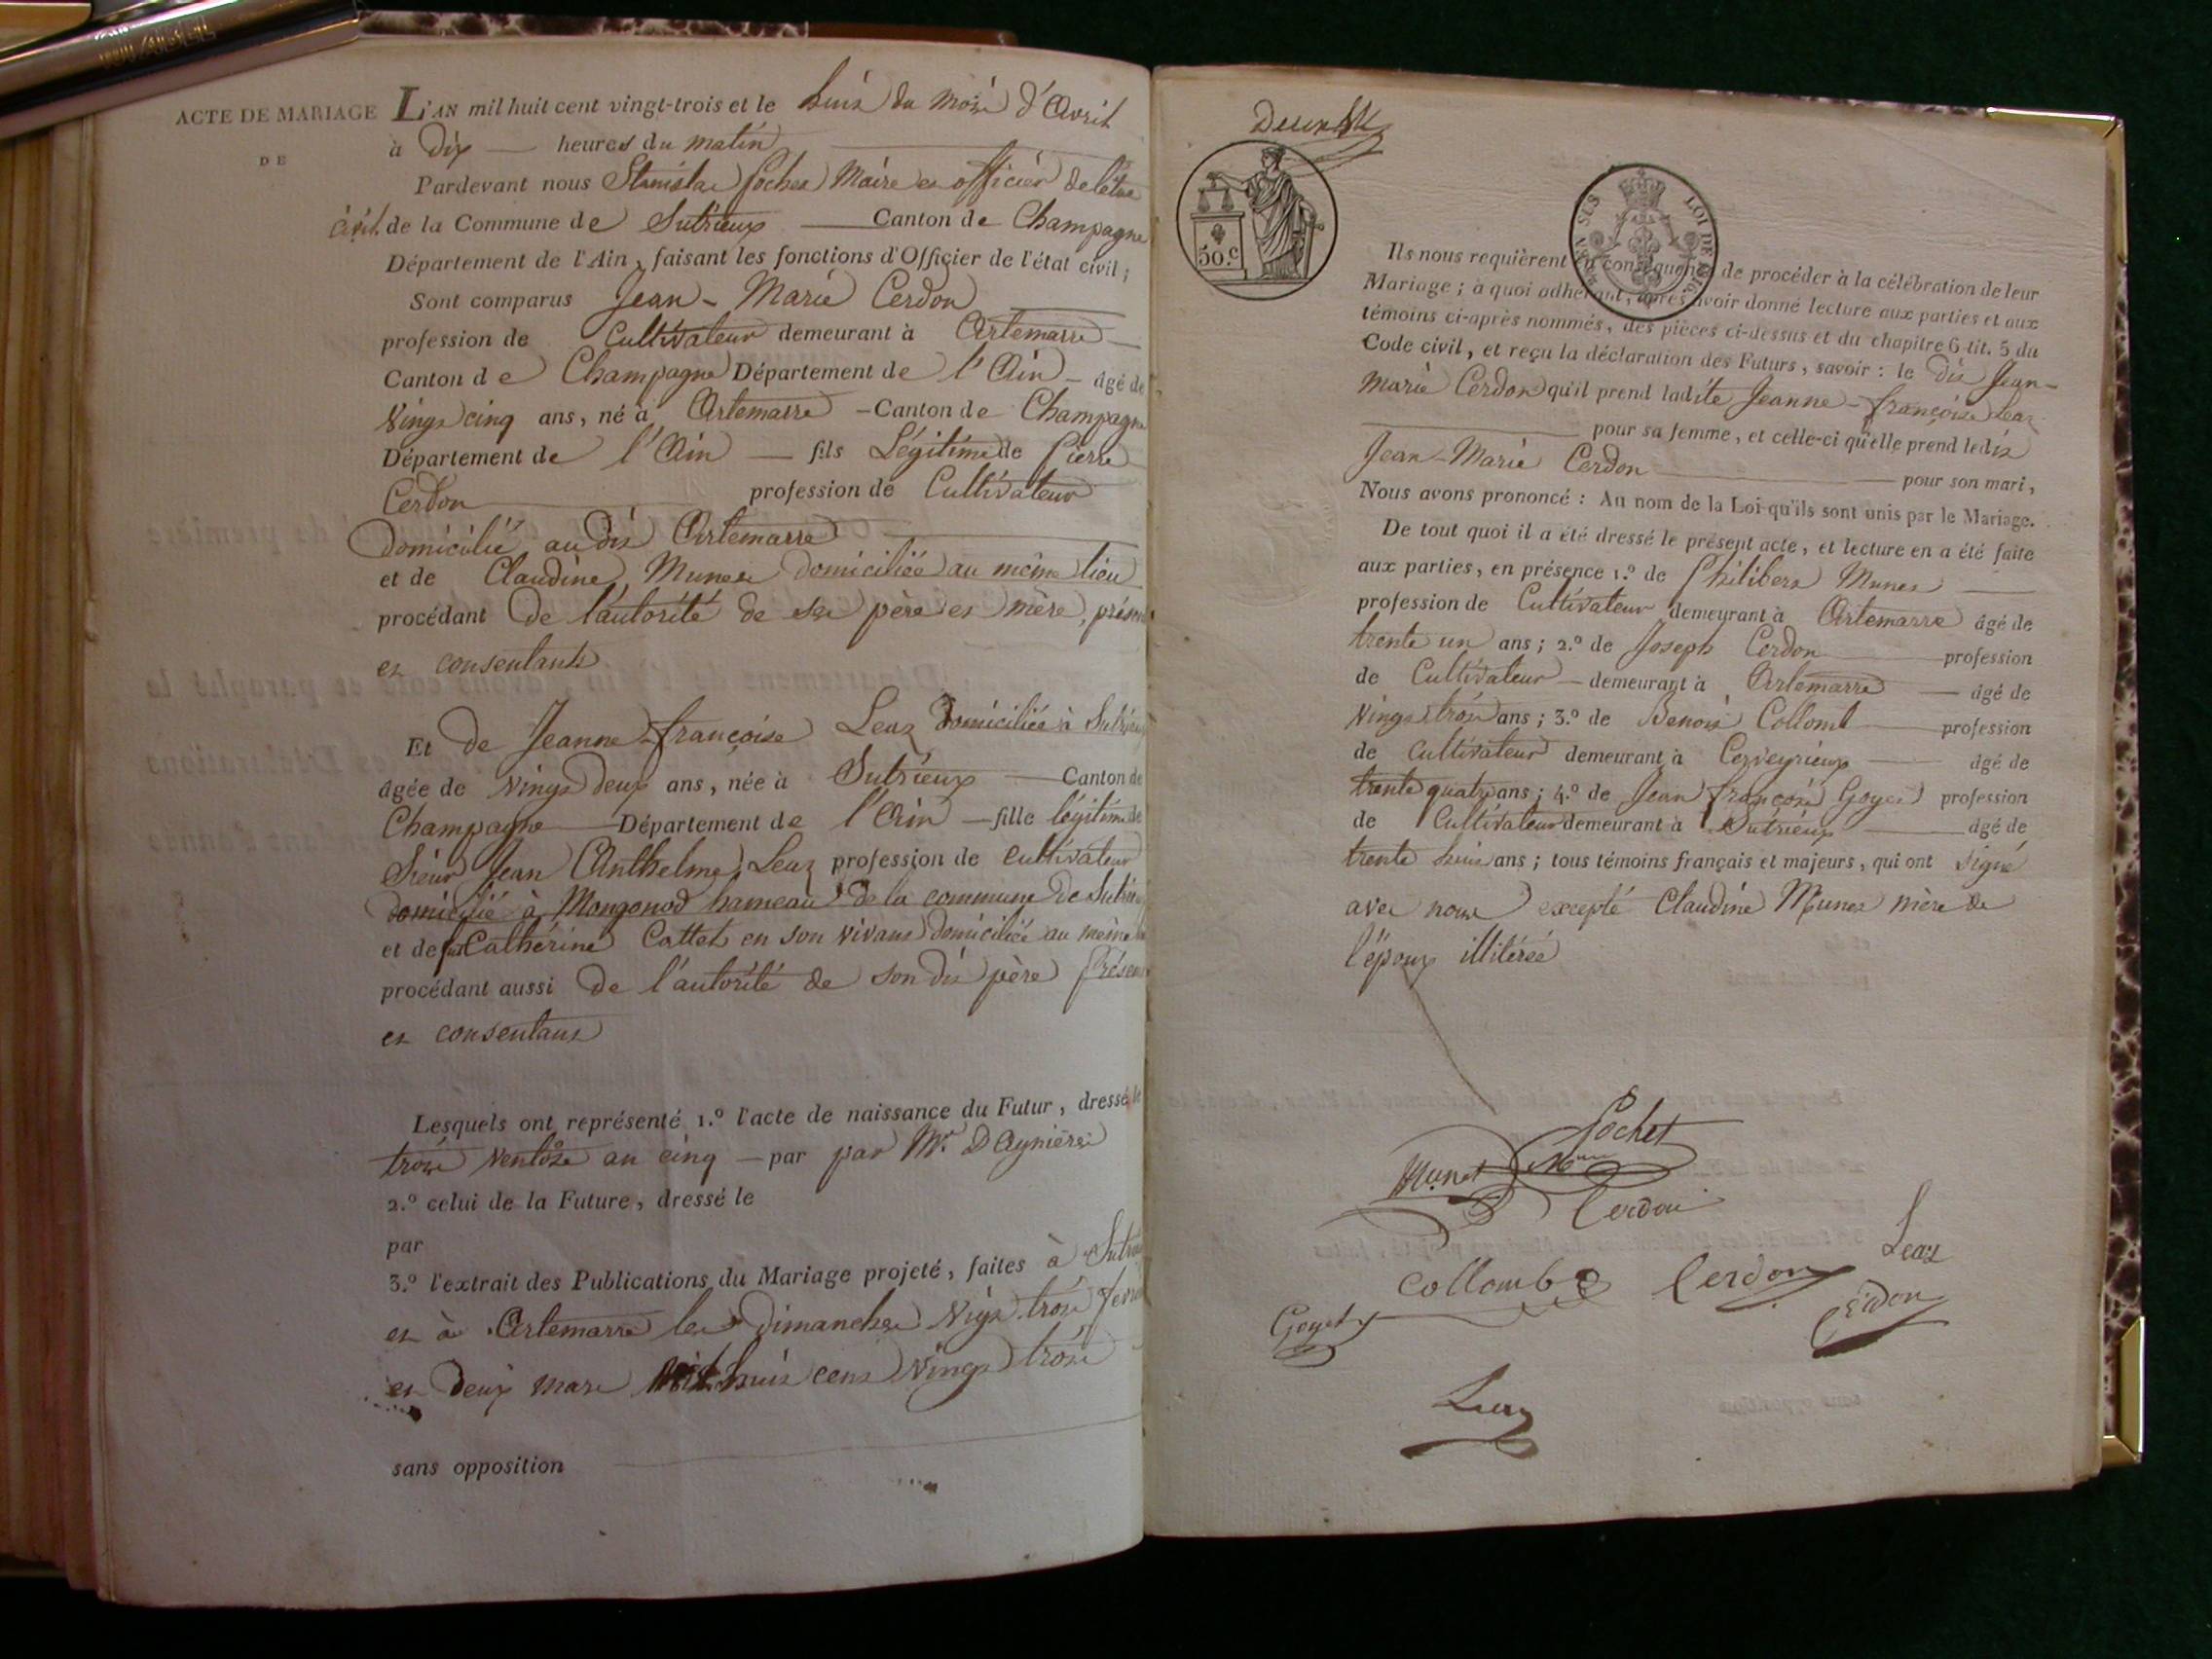 ACTE DE MARIAGE
DE
L'AN mil huit cent vingt-trois et le huit du mois d'Avril
à Dix heures du matin
Pardevant nous Stanislas Pochet Maire et officier de l'état
civil de la Commune de Sutrieux Canton de Champagne
Département de l'Ain, faisant les fonctions d'Officier de l'état civil;
Sont comparus Jean-Marie Cerdon
profession de Cultivateur demeurant à Artemarre
Canton de Champagne Département de l'Ain âgé de
Vingt cinq ans, né à Artemarre Canton de Champagne
Département de l'Ain fils Légitime de Pierre
Cerdon profession de Cultivateur
Domicilié au dit Artemarre
et de Claudine Munet domiciliée au même lieu
procédant de l'autorité de ses père et mère, présents
et consentants
Et de Jeanne-françoise Leaz Domiciliée à Sutrieux
âgée de Vingt deux ans, née à Sutrieux Canton de
Champagne Département de l'Ain fille légitime de
Sieur Jean Anthelme Leaz profession de cultivateur
domicilié à Mongonod hameau de la commune de Sutrieux
et de feu Catherine Cottet en son vivant domiciliée au même
procédant aussi de l'autorité de son dit père Présent
et consentant
Lesquels ont représenté 1.º l'acte de naissance du Futur, dressé le
trois Ventôse an cinq par par Mr. D'Aynières
2.º celui de la Future, dressé le
par
3.º l'extrait des Publications du Mariage projeté, faites à Sutrieux
et à Artemarre les dimanches Vigt trois fevrier
et deux mars mil huit cent Vingt trois
sans opposition
50.C
LOI DE 1816
Ils nous requièrent en conséquence de procéder à la célébration de leur
Mariage; à quoi adhérant, après avoir donné lecture aux parties et aux
témoins ci-après nommés, des pièces ci-dessus et du chapitre 6 tit. 5 du
Code civil, et reçu la déclaration des Futurs, savoir: le dit Jean-
Marie Cerdon qu'il prend ladite Jeanne-françoise Leaz
pour sa femme, et celle-ci qu'elle prend ledit
Jean-Marie Cerdon pour son mari,
Nous avons prononcé: Au nom de la Loi qu'ils sont unis par le Mariage.
De tout quoi il a été dressé le présent acte, et lecture en a été faite
aux parties, en présence 1.º de Philibert Munet
profession de Cultivateur demeurant à Artemarre âgé de
trente un ans; 2.º de Joseph Cerdon profession
de Cultivateur demeurant à Artemarre âgé de
Vingt trois ans; 3.º de Benoit Collomb profession
de Cultivateur demeurant à Cerveyrieux âgé de
trente quatre ans; 4.º de Jean françois Goyet profession
de Cultivateur demeurant à Sutrieux âgé de
trente huit ans; tous témoins français et majeurs, qui ont signé
avec nous excepté Claudine Munet mère de
l'époux illitérée
Pochet
Munet
Cerdon
Leaz
Collomb
Cerdon
Cerdon
Goyet
Leaz